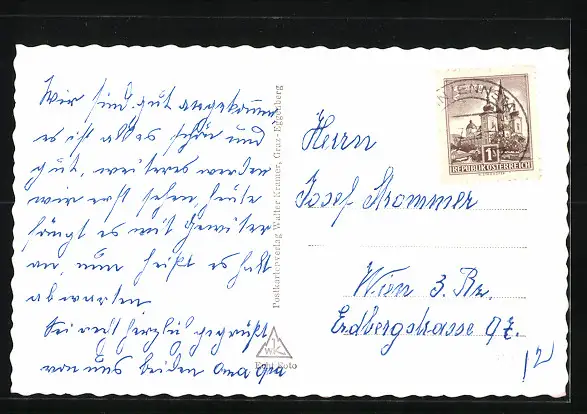 Wir sind gut angekommen
es ist alles schön und
gut, weiteres werden
wir erst sehen, heute
fängt es mit Gewitter
an, nun heißt es halt
abwarten
Sei recht herzlich gegrüßt
von uns beiden Omaopa
Postkartenverlag Walter Kramer, Graz-Eggenberg
WK
Echt Foto
1S
REPUBLIK ÖSTERREICH
Herrn
Josef Strommer
Wien 3. Bz.
Erdbergstrasse 97.
12